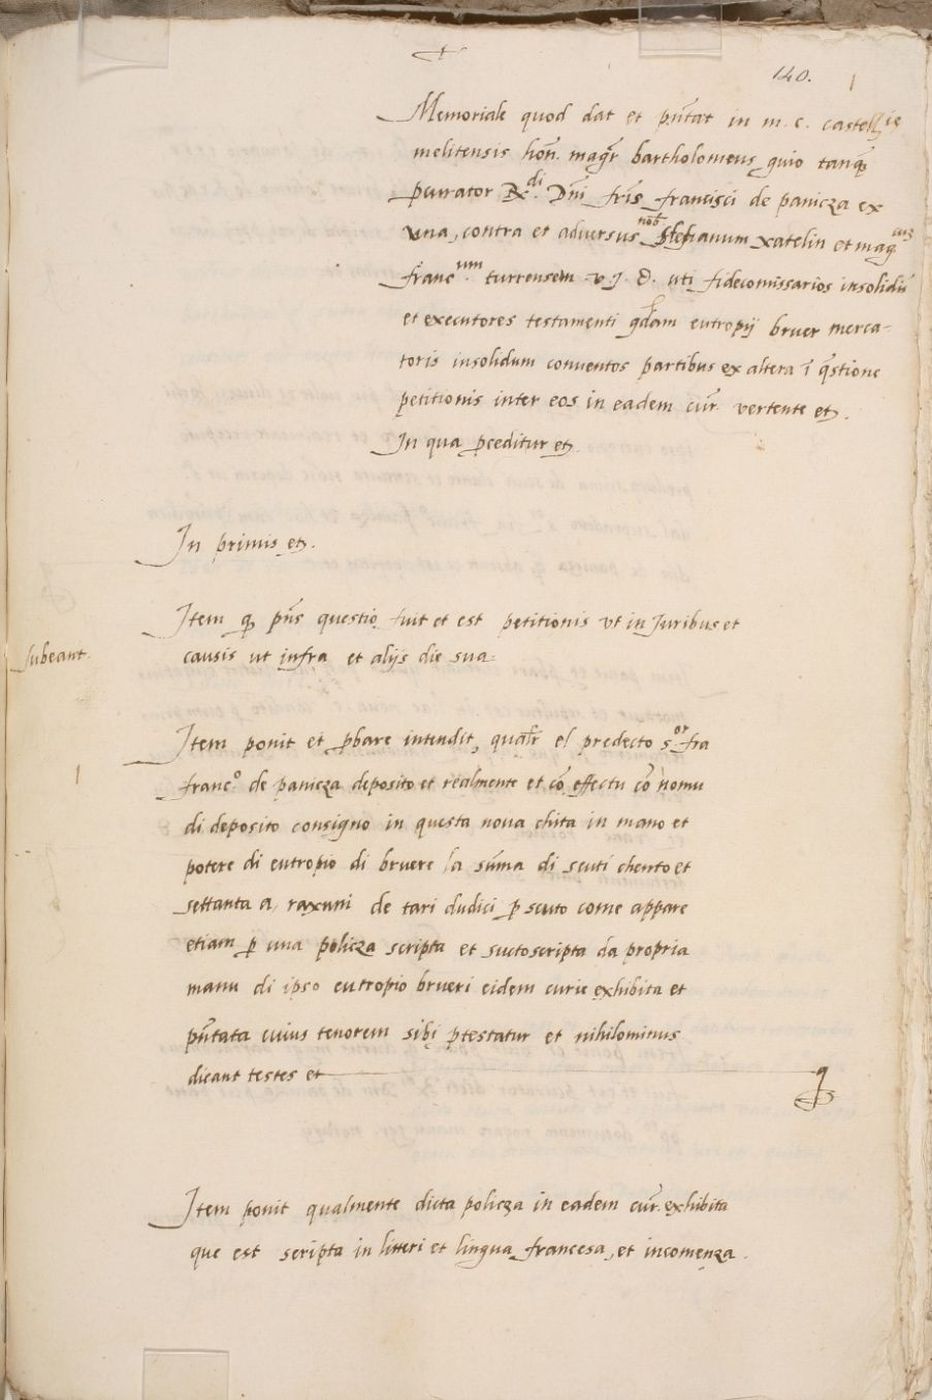 140.
Memoriale quod dat et pñtat in m. c. castellie
melitensis hoñ. magr̃ bartholomeus guio tanq̃
pcurator R.di Dñi fr̃is francisci de panicza ex
una, contra et adversus nob̃ stefianum xatelin et mag.cuz
franc.um turrensem v. J. d. uti fidecomissarios insolidũ
et executores testamenti qd̃am eutropij bruer merca-
toris insolidum conventos partibus ex altera ĩ q̃stione
petitionis inter eos in eadem cur̃. vertente et.
In qua pceditur et.
In primis et.
Item q̃ pñs questio fuit et est petitionis ut in Juribus et
causis ut infra et alijs die sua
subeant.
Item ponit et pbare intendit, qualr̃ el predecto s.or fra
franc.o de panicza deposito et realmente et cõ effectu cõ nomu
di deposito consigno in questa nova chita in mano et
potere di eutropio di bruere la sũma di scuti chento et
settanta a raxuni de tari dudici p scuto come appare
etiam p una policza scripta et suctoscripta da propria
manu di ipso eutropio brueri eidem curie exhibita et
pñtata cuius tenorem sibi ptestatur et nihilominus
dicant testes et
Item ponit qualmente dicta policza in eadem cur̃. exhibita
que est scripta in litteri et lingua francesa, et incomenza.